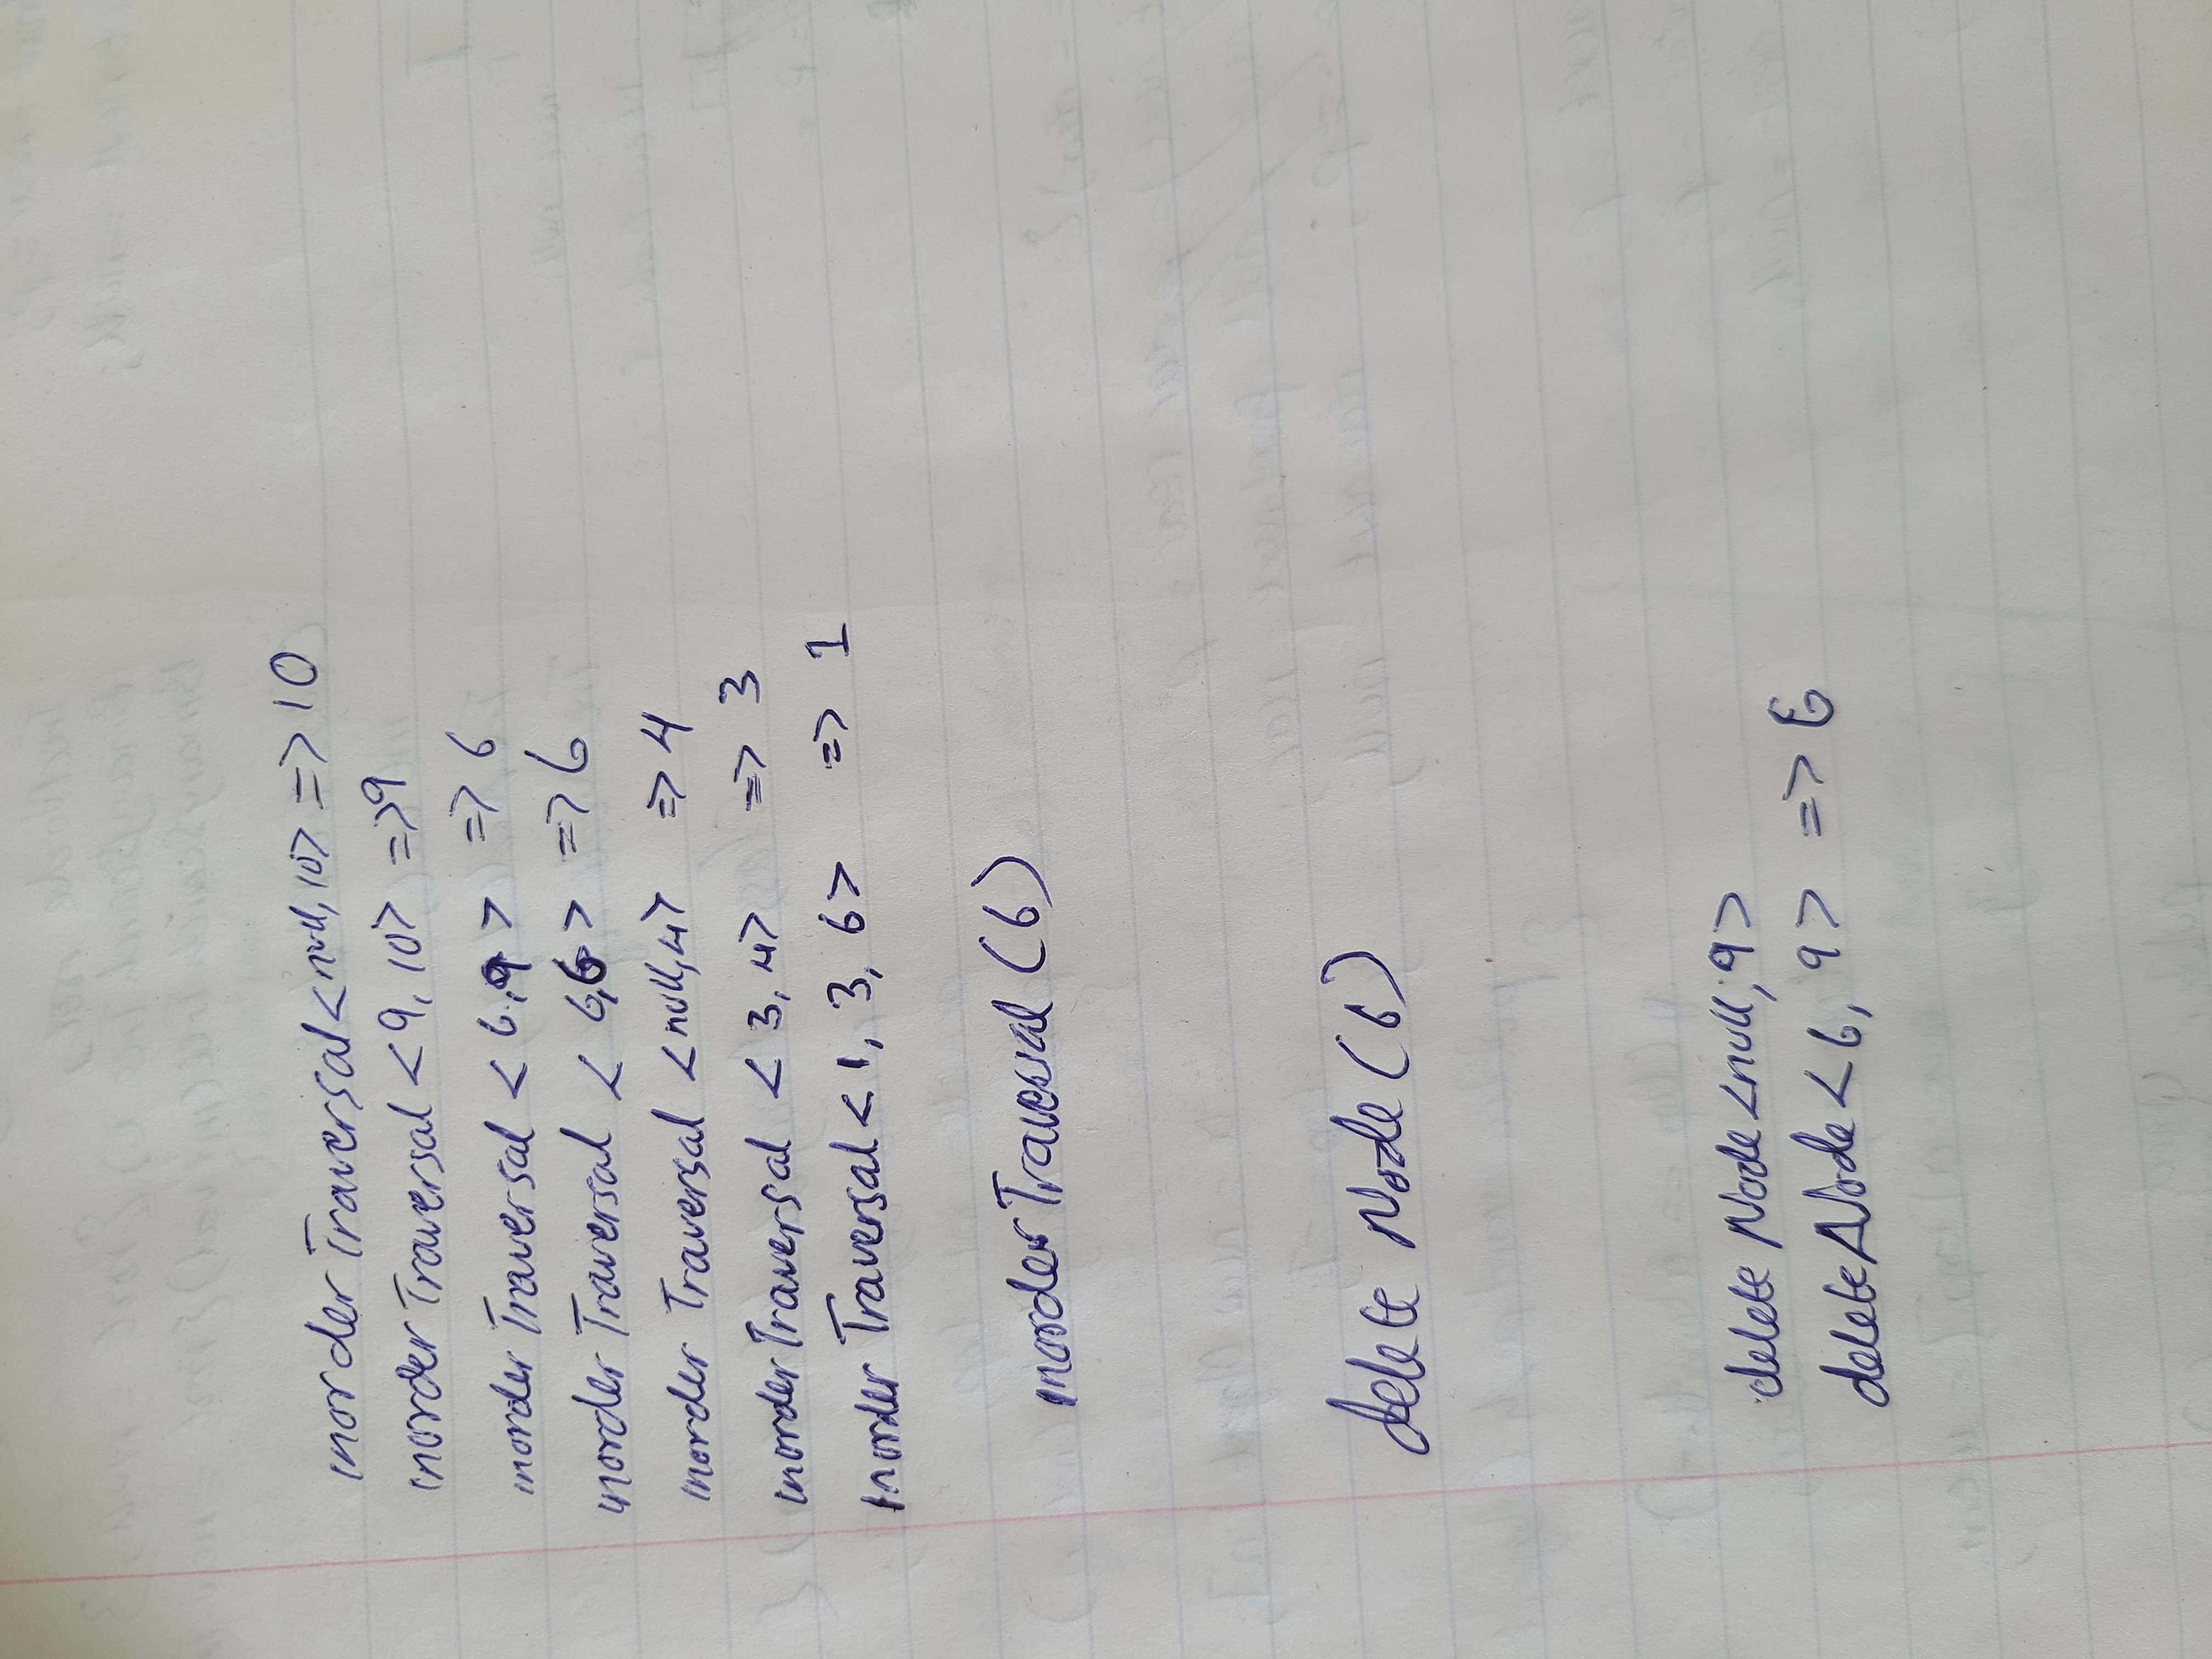 inorderTraversal<null,10> => 10
inorderTraversal <9,10> =>9
inorderTraversal <6,9> => 6
inorderTraversal <6,6> => 6
inorder Traversal <null,4> => 4
inorderTraversal <3,4> => 3
InorderTraversal<1, 3, 6> => 1
inorderTraversal (6)
delete Node(6)
delete Node<null,9>
deleteNode<6, 9> => 6